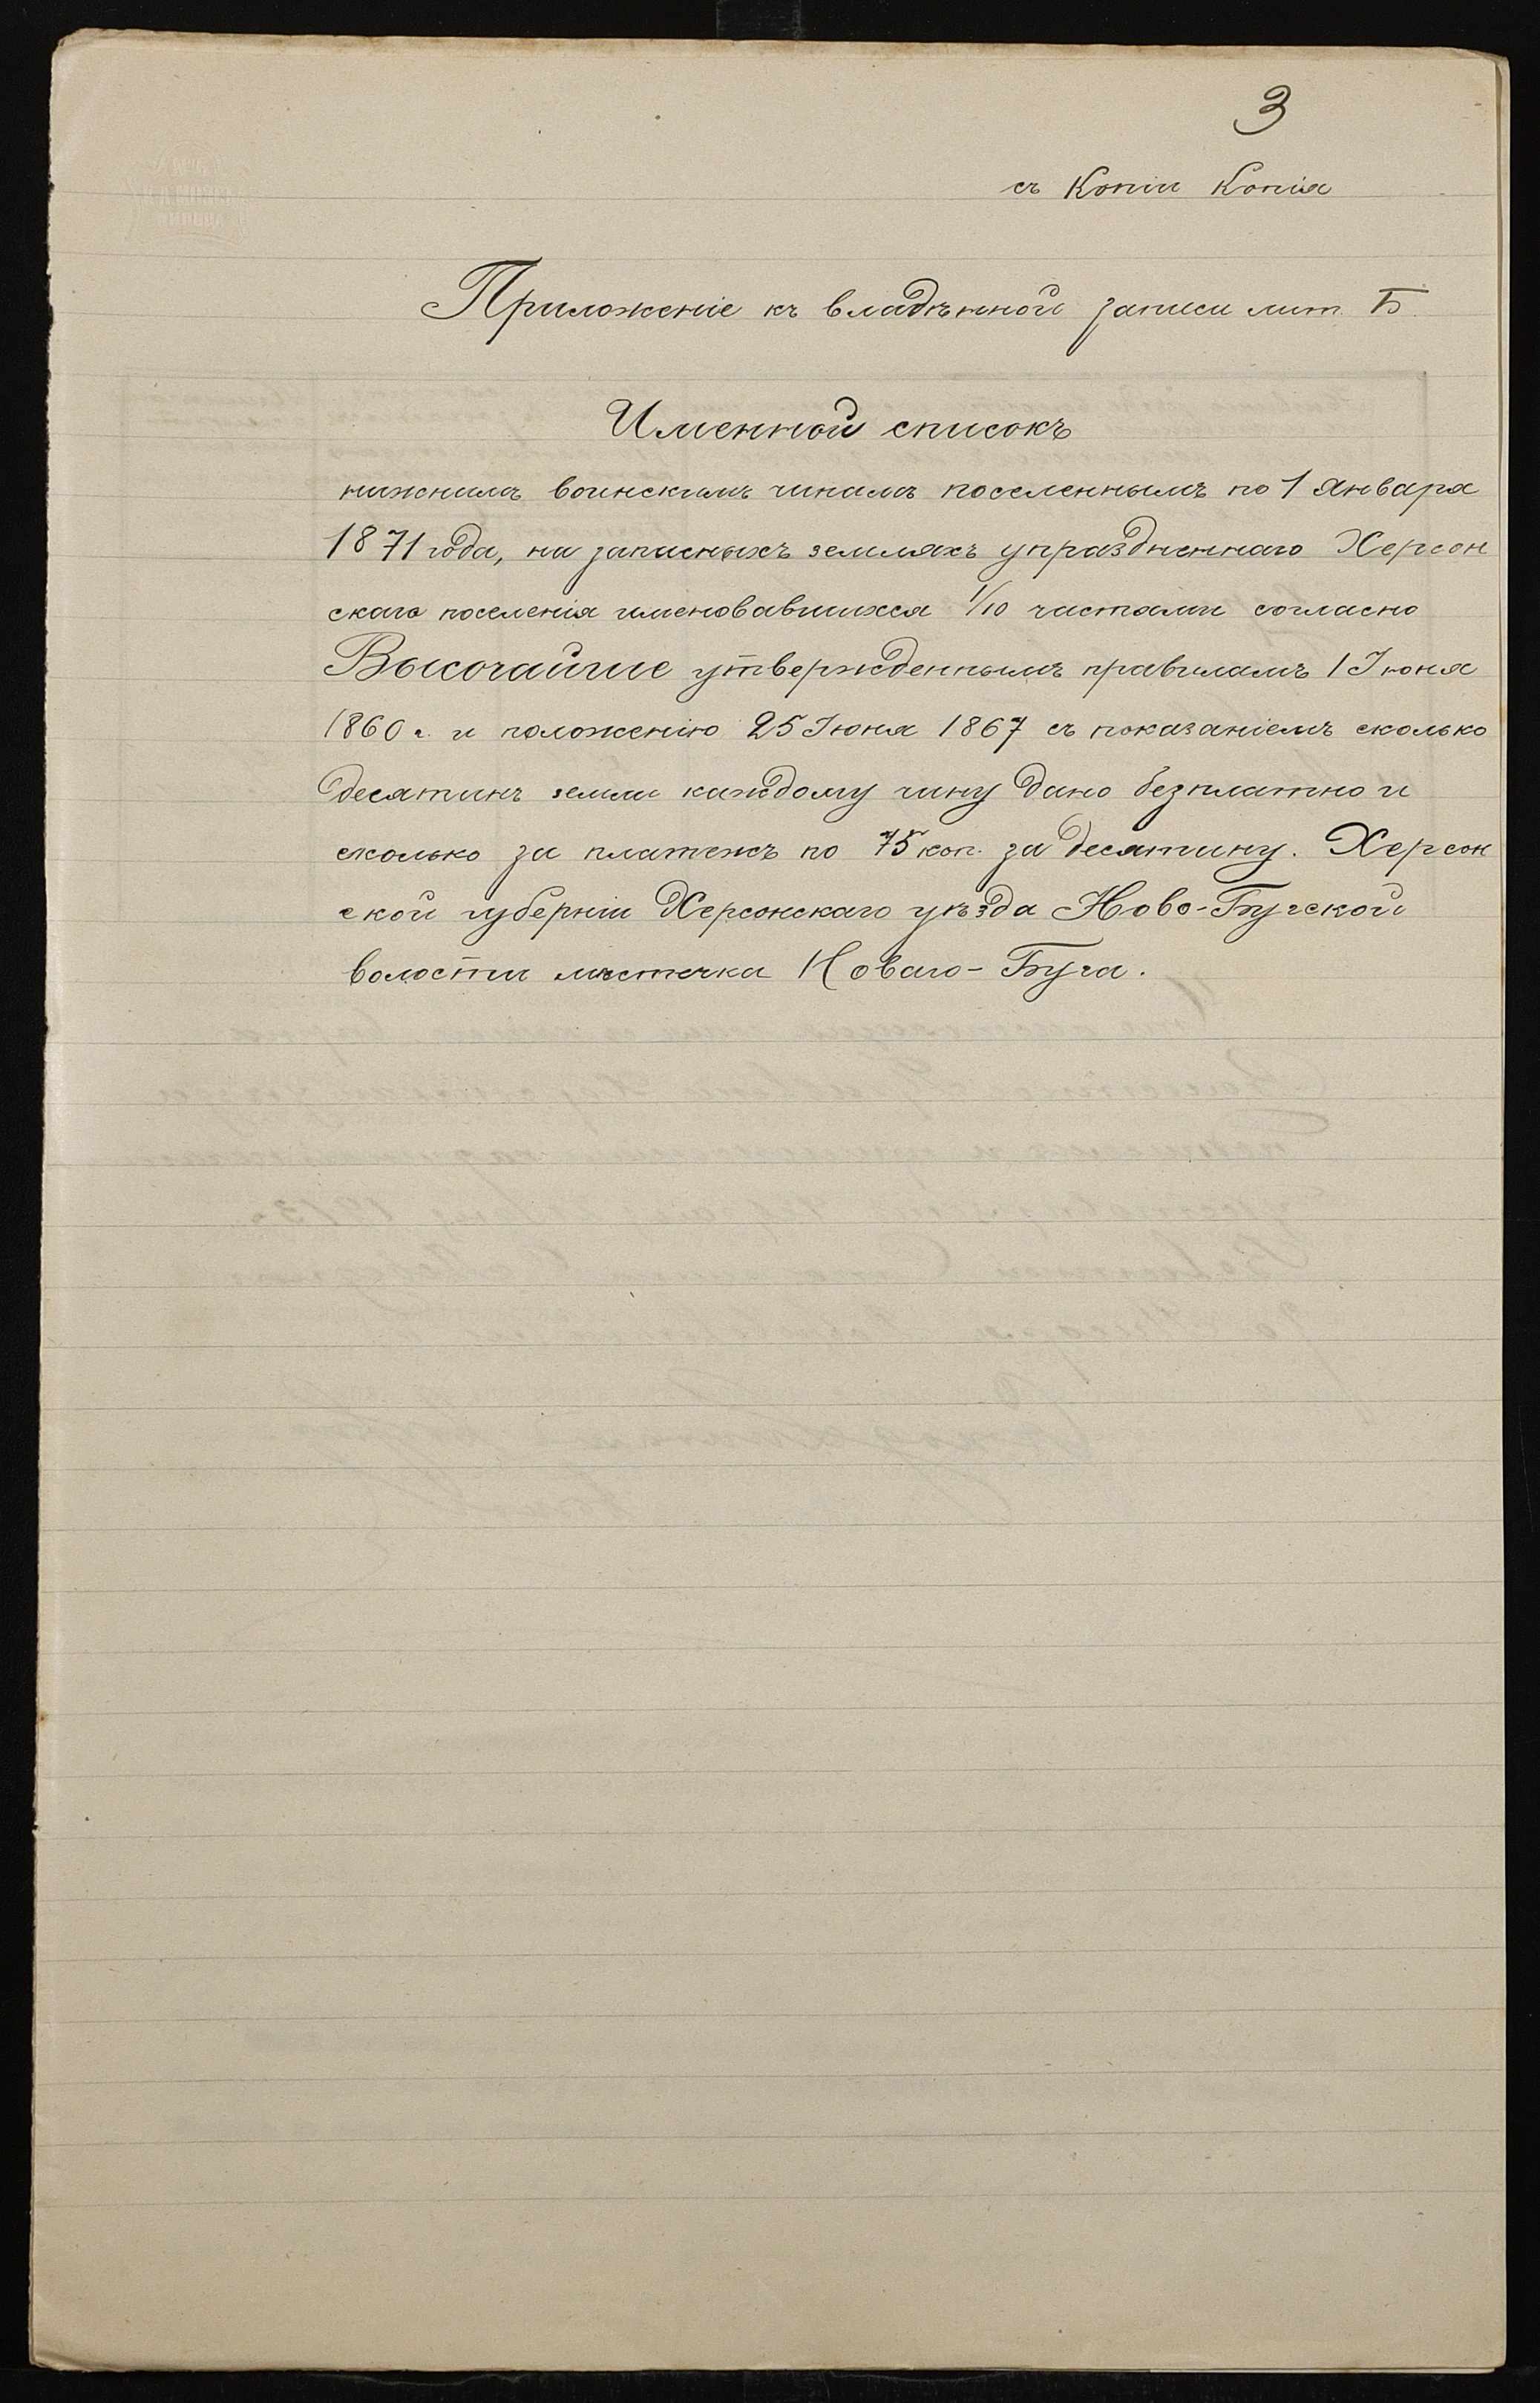 3
съ Копіи Копія
Приложеніе къ владѣнной записи лит. Б.
Именной списокъ
нижнимъ воинскимъ чинамъ поселеннымъ по 1 Января
1871 года, на запасныхъ земляхъ упраздненнаго Херсон
скаго поселенія именовавшихся 1/10 частями согласно
Высочайше утвержденнымъ правиламъ 1 Іюня
1860 г. и положенію 25 Іюня 1867 съ показаніемъ сколько
десятинъ земли каждому чину дано безплатно и
сколько за платежъ по 75 коп. за десятину. Херсон
ской губерніи Херсонскаго уѣзда Ново-Бугской
волости мѣстечка Новаго-Буга.